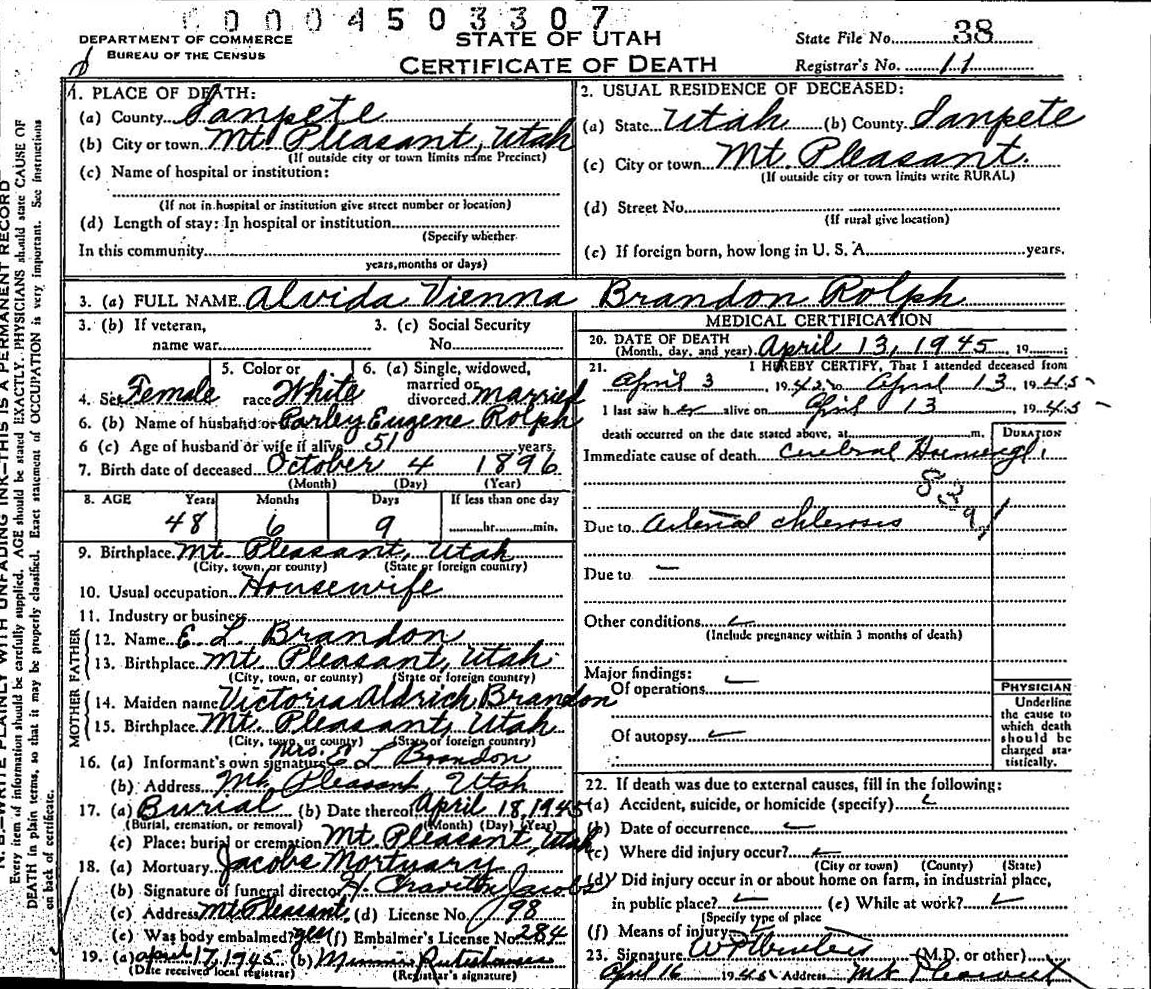 00004503307
DEPARTMENT OF COMMERCE
BUREAU OF THE CENSUS
STATE OF UTAH
CERTIFICATE OF DEATH
State File No. 38
Registrar's No. 11
N. B.—WRITE PLAINLY WITH UNFADING INK—THIS IS A PERMANENT RECORD
Every item of information should be carefully supplied. AGE should be stated EXACTLY. PHYSICIANS should state CAUSE OF
DEATH in plain terms, so that it may be properly classified. Exact statement of OCCUPATION is very important. See instructions
on back of certificate.
1. PLACE OF DEATH:
(a) County Sanpete
(b) City or town Mt. Pleasant, Utah
(If outside city or town limits name Precinct)
(c) Name of hospital or institution:
(If not in hospital or institution give street number or location)
(d) Length of stay: In hospital or institution
(Specify whether
In this community
years, months or days)
2. USUAL RESIDENCE OF DECEASED:
(a) State Utah (b) County Sanpete
(c) City or town Mt. Pleasant.
(If outside city or town limits write RURAL)
(d) Street No.
(If rural give location)
(e) If foreign born, how long in U. S. A. years.
3. (a) FULL NAME Alvida Vienna Brandon Rolph
3. (b) If veteran, name war
3. (c) Social Security No.
4. Sex Female
5. Color or race White
6. (a) Single, widowed, married or divorced married
6. (b) Name of husband or Parley Eugene Rolph
6 (c) Age of husband or wife if alive 51 years
7. Birth date of deceased October 4 1896
(Month) (Day) (Year)
8. AGE Years Months Days If less than one day
48 6 9 hr. min.
9. Birthplace Mt. Pleasant, Utah
(City, town, or county) (State or foreign country)
10. Usual occupation Housewife
11. Industry or business
FATHER
12. Name E L Brandon
13. Birthplace Mt. Pleasant, Utah
(City, town, or county) (State or foreign country)
MOTHER
14. Maiden name Victoria Aldrich Brandon
15. Birthplace Mt. Pleasant, Utah
(City, town, or county) (State or foreign country)
16. (a) Informant's own signature Mrs. E L Brandon
(b) Address Mt. Pleasant, Utah
17. (a) Burial (b) Date thereof April 18, 1945
(Burial, cremation, or removal) (Month) (Day) (Year)
(c) Place: burial or cremation Mt. Pleasant, Utah
18. (a) Mortuary Jacobs Mortuary
(b) Signature of funeral director H. Jacobs
(c) Address Mt Pleasant, (d) License No. 98
(e) Was body embalmed? yes (f) Embalmer's License No. 284
19. (a) April 17, 1945 (b) Minnie
(Date received local registrar) (Registrar's signature)
MEDICAL CERTIFICATION
20. DATE OF DEATH
(Month, day, and year) April 13, 1945, 19 ;
21. I HEREBY CERTIFY, That I attended deceased from
April 3, 1945 to April 13, 1945
I last saw her alive on April 13, 1945
death occurred on the date stated above, at m.
DURATION
Immediate cause of death Cerebral
83
Due to Arterial chlerosis
Due to —
Other conditions
(Include pregnancy within 3 months of death)
Major findings:
Of operations
Of autopsy
PHYSICIAN
Underline
the cause to
which death
should be
charged sta-
tistically.
22. If death was due to external causes, fill in the following:
(a) Accident, suicide, or homicide (specify)
(b) Date of occurrence
(c) Where did injury occur?
(City or town) (County) (State)
(d) Did injury occur in or about home on farm, in industrial place,
in public place? (e) While at work?
(Specify type of place
(f) Means of injury
23. Signature (M.D. or other)
April 16 1945 Address Mt Pleasant